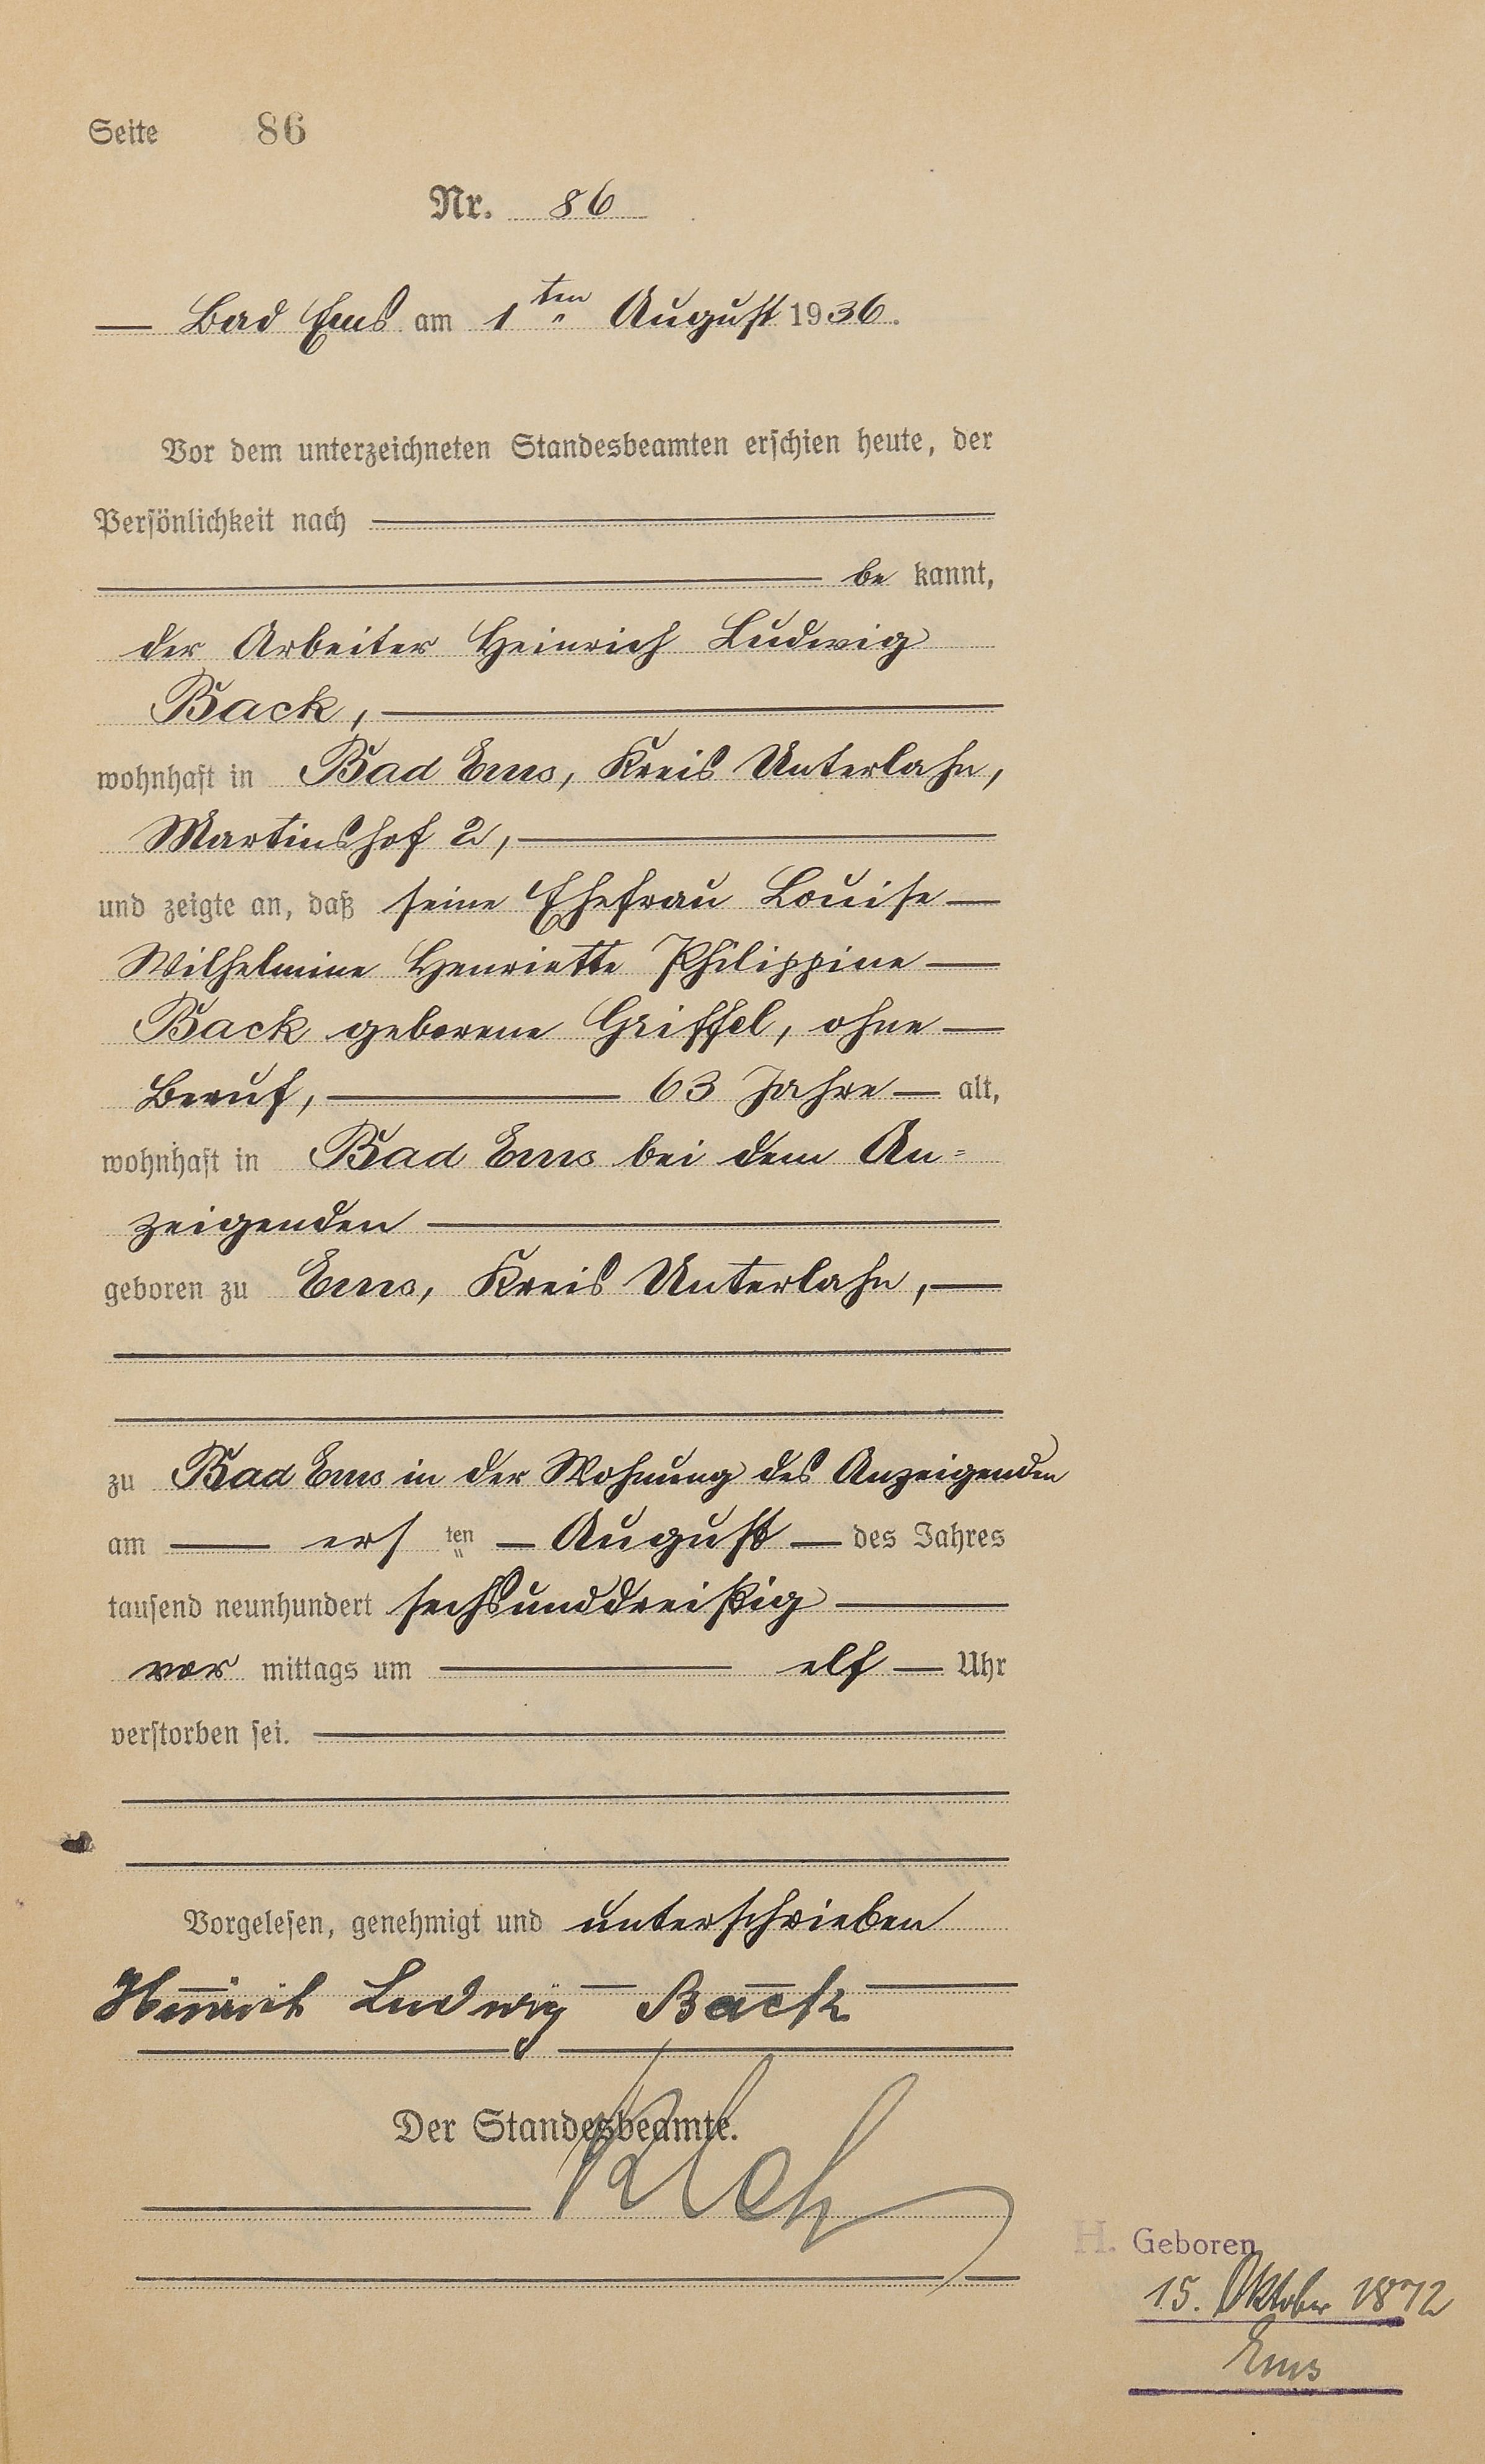 Seite 86
Nr. 86
Bad Ems am 1ten August 1936.
Vor dem unterzeichneten Standesbeamten erschien heute, der
Persönlichkeit nach
be kannt,
der Arbeiter Heinrich Ludwig
Back,
wohnhaft in Bad Ems, Kreis Unterlahn,
Martinshof 2,
und zeigte an, daß seine Ehefrau Louise
Wilhelmine Henriette Philippine
Back geborene Griffel, ohne
Beruf, 63 Jahre alt,
wohnhaft in Bad Ems bei dem An=
zeigenden
geboren zu Ems, Kreis Unterlahn,
zu Bad Ems in der Wohnung des Anzeigenden
am ersten August des Jahres
tausend neunhundert sechsunddreißig
vor mittags um elf Uhr
verstorben sei.
Vorgelesen, genehmigt und unterschrieben
Heinrich Ludwig Back
Der Standesbeamte.
H. Geboren
15. Oktober 1872
Ems